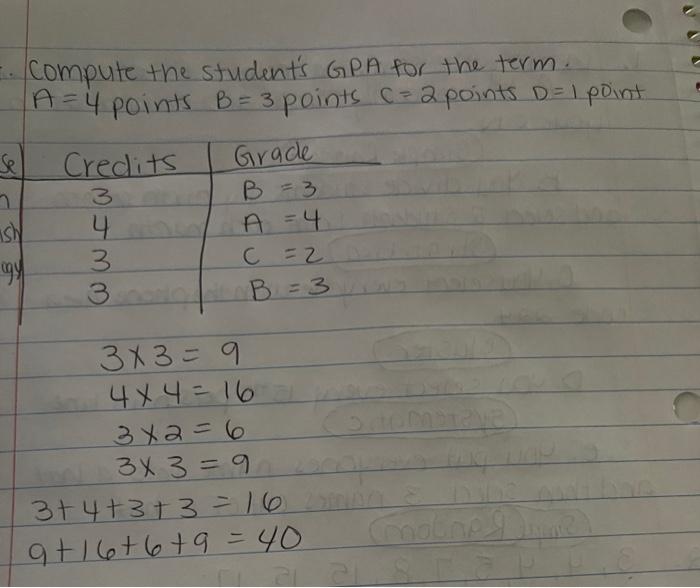 Compute the student's GPA for the term.
A = 4 points B = 3 points C = 2 points D = 1 point
se Credits Grade
n 3 B = 3
ish 4 A = 4
ogy 3 C = 2
3 B = 3
3 x 3 = 9
4 x 4 = 16
3 x 2 = 6
3 x 3 = 9
3 + 4 + 3 + 3 = 16
9 + 16 + 6 + 9 = 40